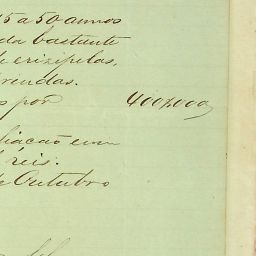 45 a 50 annos
da bastante
de erizipelas,
rendas.
s por 400$000
liacaō em
reis.
de Outubro